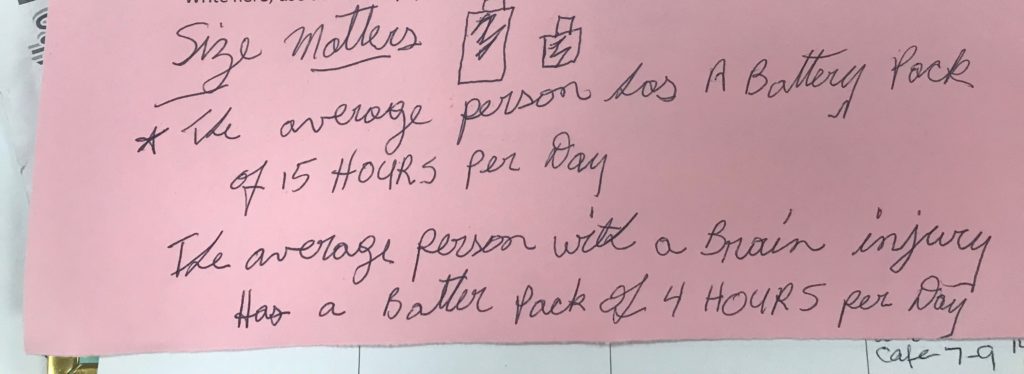 Size Matters
* The average person has A Battery Pack
of 15 HOURS per Day
The average person with a Brain injury
Has a Batter Pack of 4 HOURS per Day
Cafe 7-9